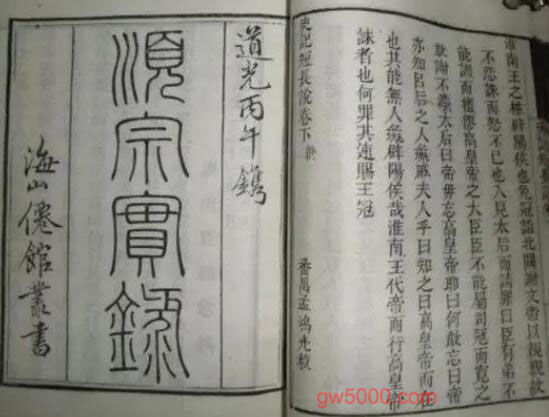 淮南王之椎辟陽侯也免冠詣北闕謝文帝以親親故
不忍誅而怒不已也入見太后而請罪曰臣有弟不
能訓而擅僇高皇帝之大臣臣不能屬司寇而寬之
敢謝不學太后曰帝毋忘高皇帝耶曰何敢忘曰帝
亦知呂后之人彘戚夫人乎曰知之曰高皇帝而在
也其能無人彘辟陽侯哉淮南王代帝而行高皇帝
誅者也何罪其速賜王冠
史記短長說卷下終
番禺孟鴻光校
道光丙午鐫
順宗實錄
海山僊館叢書
gw5000.com